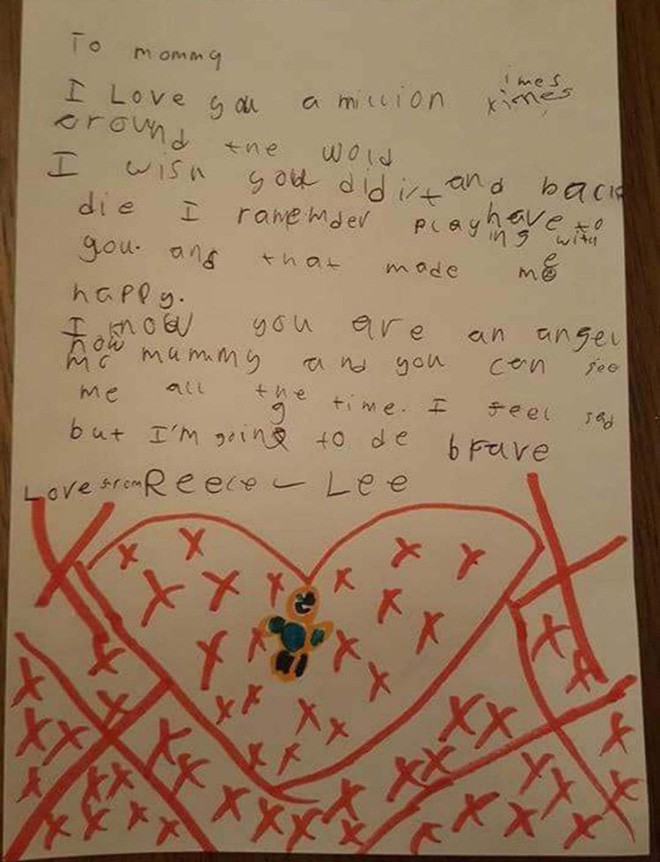 To mommy
I Love you a million times
around the wold
I wish you did'it and back
die I ramemder playing with have to
you. and that made me
happy.
I know you are an angel
now mummy and you can see
me all the time. I feel sad
but I'm going to de brave
Love from Reece - Lee